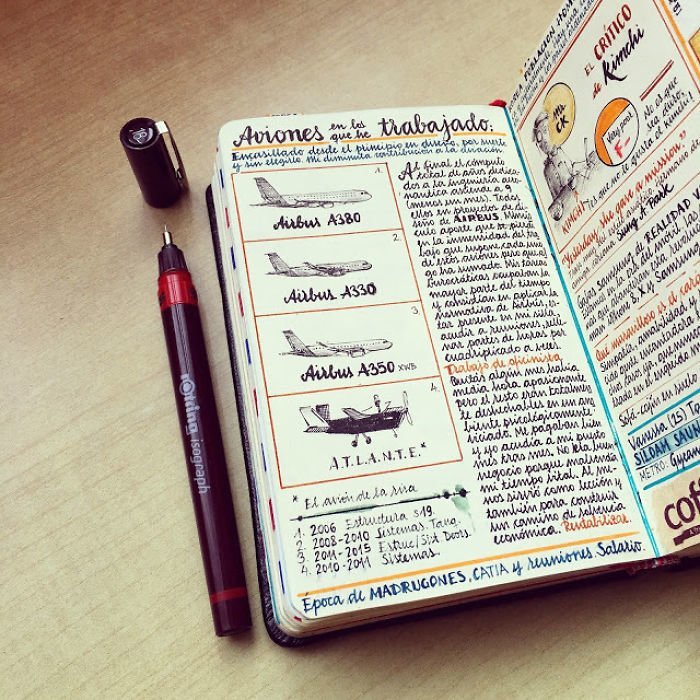 Aviones en los que he trabajado.
Encasillado desde el principio en diseño, por suerte
y sin elegirlo. Mi diminuta contribución a la aviación.
1.
Airbus A380
2.
Airbus A330
3.
Airbus A350 XWB
4.
A.T.L.A.N.T.E.*
* El avión de la risa
1. 2006 Estructura S19.
2. 2008-2010 Sistemas Tanq.
3. 2011-2015 Estruc/Sist Doors.
4. 2010-2011 Sistemas
Al final el cómputo
total de años dedica-
dos a la ingeniería aero-
náutica asciende a 9
(menos un mes). Todos
ellos en proyectos de di-
seño de AIRBUS. Minús-
culo aporte que se pierde
en la inmensidad del tra-
bajo que supone cada uno
de estos aviones pero que al-
go ha sumado. Mis tareas
burocráticas ocupaban la
mayor parte del tiempo
y consistían en aplicar la
normativa de Airbus, es-
tar presente en mi silla,
acudir a reuniones, relle-
nar partes de horas por
cuadruplicado a veces.
Trabajo de oficinista.
media hora apasionante
pero el resto eran totalmen-
te desechables en un am-
biente psicológicamente
viciado. Me pagaban bien
y yo acudía a mi puesto
mis tres mes. No era buen
negocio porque malvendía
mi tiempo vital. Al me-
nos sirvió como lección y
también para construir
un camino de solvencia
económica. Rentabilizar.
Época de MADRUGONES, CATIA y reuniones. Salario.
EL CRÍTICO
de Kimchi
MU-
CK
Very poor
F
"Yesterday, she gave a mission"
Sung-A Park
REALIDAD
Qué maravilloso es el car
Vanessa (25)
SILDAM SAUN
METRO: Gyeon
COff
rotring isograph